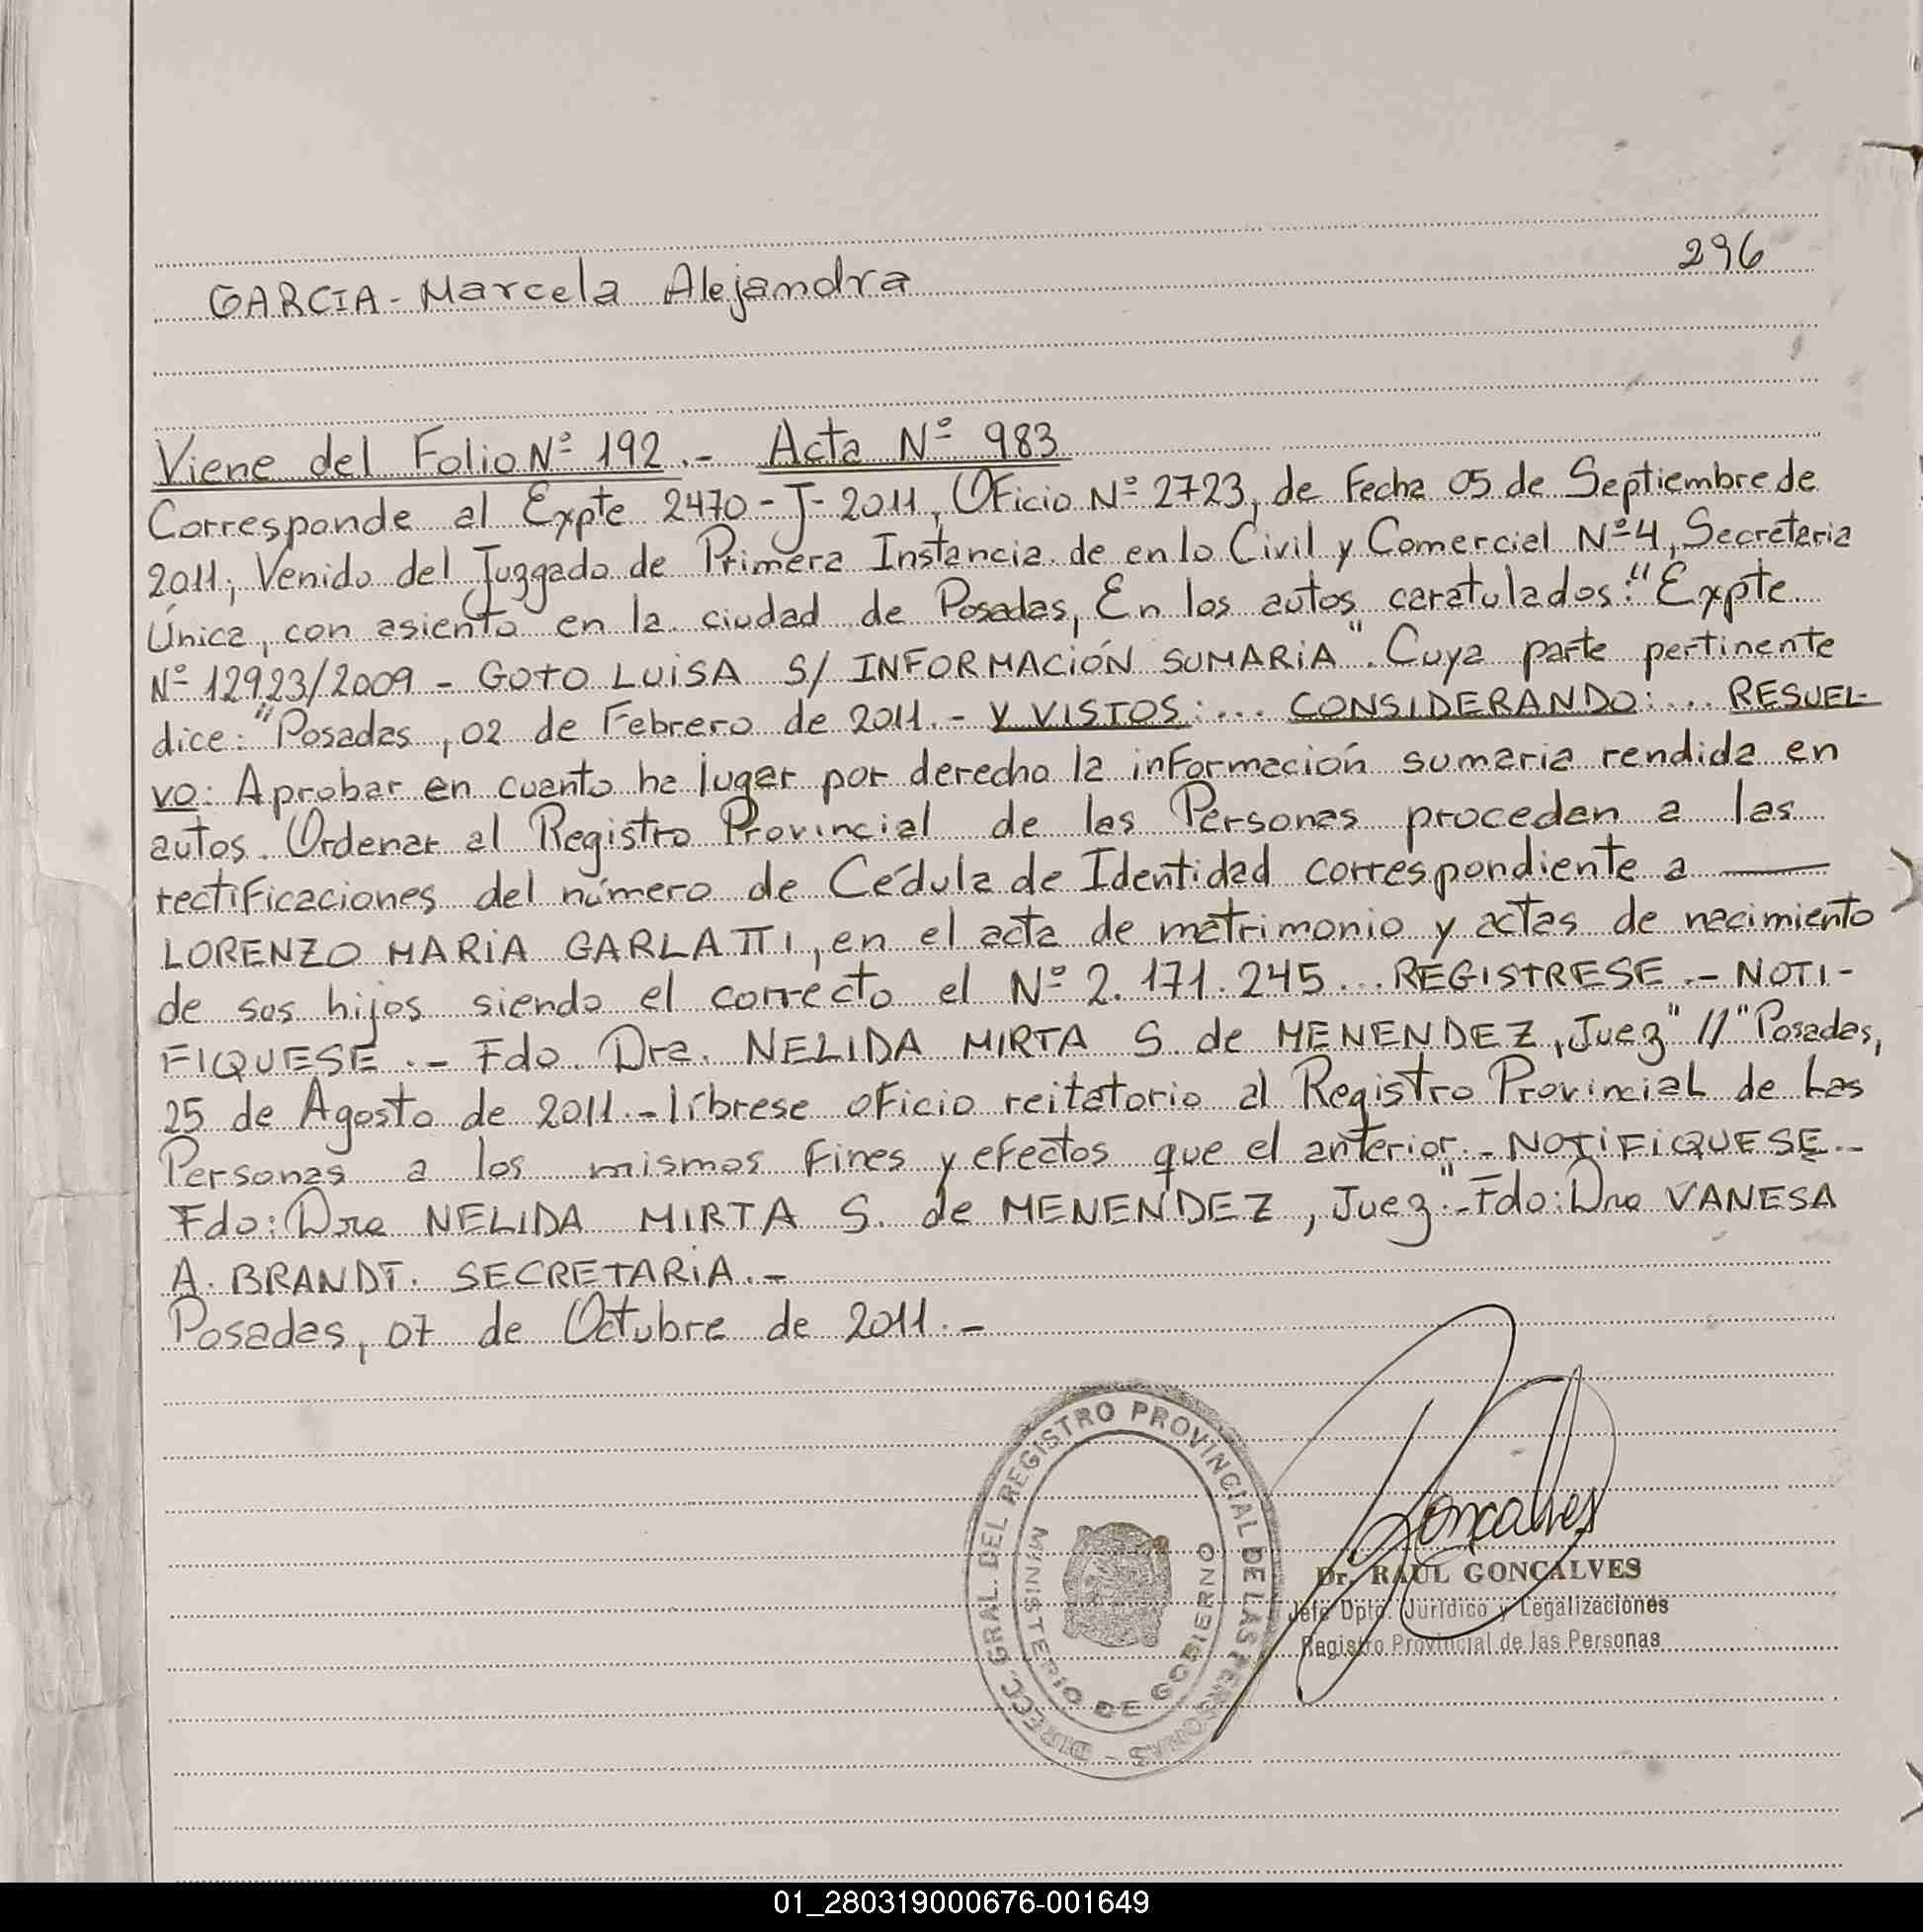 296
GARCIA - Marcela Alejandra
Viene del Folio Nº 192.- Acta Nº 983
Corresponde al Expte 2470-J-2011, Oficio Nº 2723, de Fecha 05 de Septiembre de
2011, Venido del Juzgado de Primera Instancia de en lo Civil y Comercial Nº 4, Secretaria
Única, con asiento en la ciudad de Posadas, En los autos caratulados: "Expte
Nº 12923/2009 - GOTO LUISA S/ INFORMACIÓN SUMARIA". Cuya parte pertinente
dice: "Posadas, 02 de Febrero de 2011.- Y VISTOS:... CONSIDERANDO:... RESUEL-
VO: Aprobar en cuanto ha lugar por derecho la información sumaria rendida en
autos. Ordenar al Registro Provincial de las Personas procedan a las
rectificaciones del número de Cédula de Identidad correspondiente a ——
LORENZO MARIA GARLATTI, en el acta de matrimonio y actas de nacimiento
de sus hijos siendo el correcto el Nº 2.171.245... REGISTRESE.- NOTI-
FIQUESE.- Fdo. Dra. NELIDA MIRTA S. de MENENDEZ, Juez" // "Posadas,
25 de Agosto de 2011.- líbrese oficio reitatorio al Registro Provincial de Las
Personas a los mismos Fines y efectos que el anterior.- NOTIFIQUESE.-
Fdo: Dra NELIDA MIRTA S. de MENENDEZ, Juez".- Fdo: Dra VANESA
A. BRANDT. SECRETARIA.-
Posadas, 07 de Octubre de 2011.-
DIRECC. GRAL. DEL REGISTRO PROVINCIAL DE LAS PERSONAS
MINISTERIO DE GOBIERNO
Goncalves
Dr. RAUL GONCALVES
Jefe Dpto. Jurídico y Legalizaciones
Registro Provincial de las Personas
01_280319000676-001649